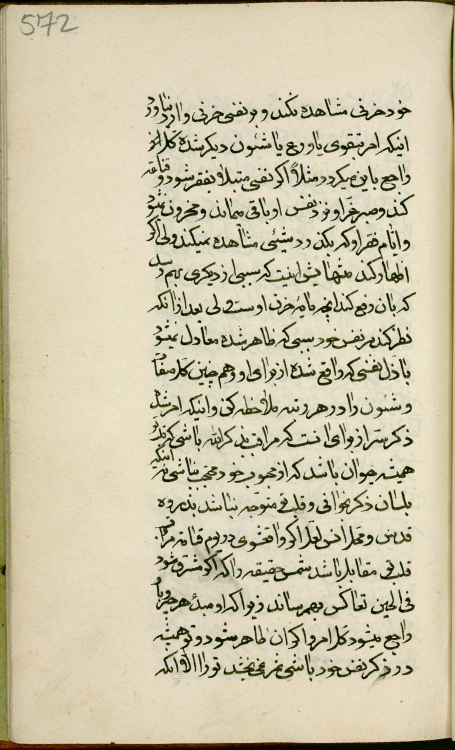 572
خود حزنی مشاهده نکند و بر نفسی حزنی وارد نیاورد
اینکه امر بتقوی یا ورع یا شئون دیگر شده کل امر
راجع باین میگردد مثلاً اگر نفسی مبتلا بفقر شود و قناعت
کند و صبر فقر او نزد نفس او باقی میماند و محزون نمیشود
و ایام فقر او که بگذرد شیئی مشاهده نمیکند ولی اگر
اظهار کند منتهایش اینست که سببی از دیگری بهم رسد
که بآن رفع کند آنچه مایه حزن اوست ولی بعد از آنکه
نظر کند بر نفس خود سببی که ظاهر شده معادل نمیشود
با ذل نفسی که واقع شده از برای او و هم چنین کل صفات
و شئون را در هر رتبه ملاحظه کن و اینکه امر شده
ذکر سر از برای آنست که مراقب ذکر الله باشی که
همیشه حیوان باشد که از محبوب خود محتجب نباشی نه اینکه
بلسان ذکر خوانی و قلب متوجه نباشد بذروه
قدس و محل انس لعل اگر واقع شوی در یوم قیامة مرآت
قلب مقابل باشد شمس حقیقة را که اگر مشرق شود
فی الحین تعاکس بهم رساند زیرا که او مبدء هر خیر
راجع میشود کل امر و اگر آن ظاهر شود و تو همیشه
در ذکر نفس خود باشی ثمر نمی بخشد تو را الا آنکه